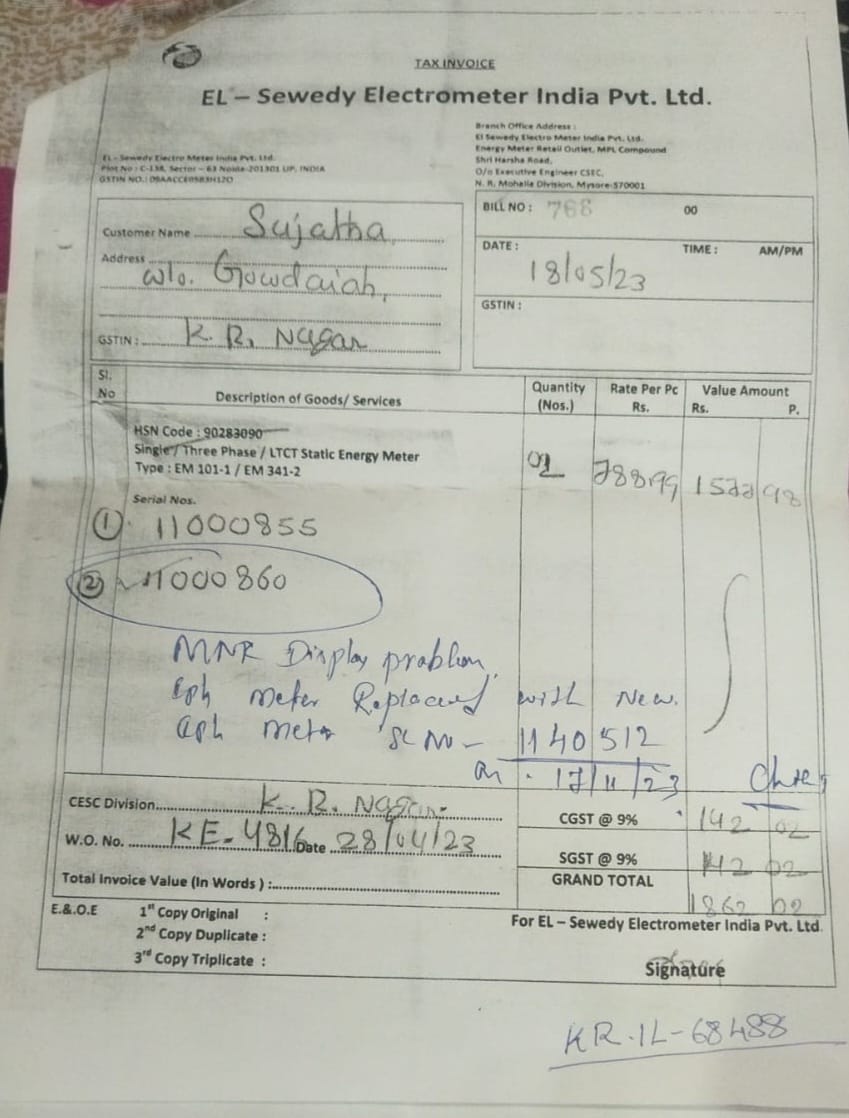 TAX INVOICE
EL – Sewedy Electrometer India Pvt. Ltd.
EL – Sewedy Electro Meter India Pvt. Ltd.
Plot No : C-138, Sector – 63 Noida-201301 UP, INDIA
GSTIN NO.:
Branch Office Address :
El Sewedy Electro Meter India Pvt. Ltd.
Energy Meter Retail Outlet, MPL Compound
Shri Harsha Road,
O/o Executive Engineer CSEC,
N. R. Mohalla Division, Mysore-570001
Customer Name Sujatha
Address
w/o. Gowdaiah,
GSTIN : K. R. Nagar
BILL NO : 768 00
DATE : TIME : AM/PM
18/05/23
GSTIN :
Sl. No Description of Goods/ Services Quantity (Nos.) Rate Per Pc Rs. Value Amount Rs. P.
HSN Code : 90283090
Single / Three Phase / LTCT Static Energy Meter
Type : EM 101-1 / EM 341-2
02 788.99 1577 98
Serial Nos.
① 11000855
② 11000860
MNR Display problem,
meter Replaced with New
meter Sl No – 1140512
17/11/23
CESC Division K. R. Nagar
W.O. No. KE-4816 Date 28/04/23
Total Invoice Value (In Words) :
CGST @ 9% 142 02
SGST @ 9% 142 02
GRAND TOTAL 1862 02
E.&.O.E 1st Copy Original :
2nd Copy Duplicate :
3rd Copy Triplicate :
For EL – Sewedy Electrometer India Pvt. Ltd.
Signature
KR.IL-68488